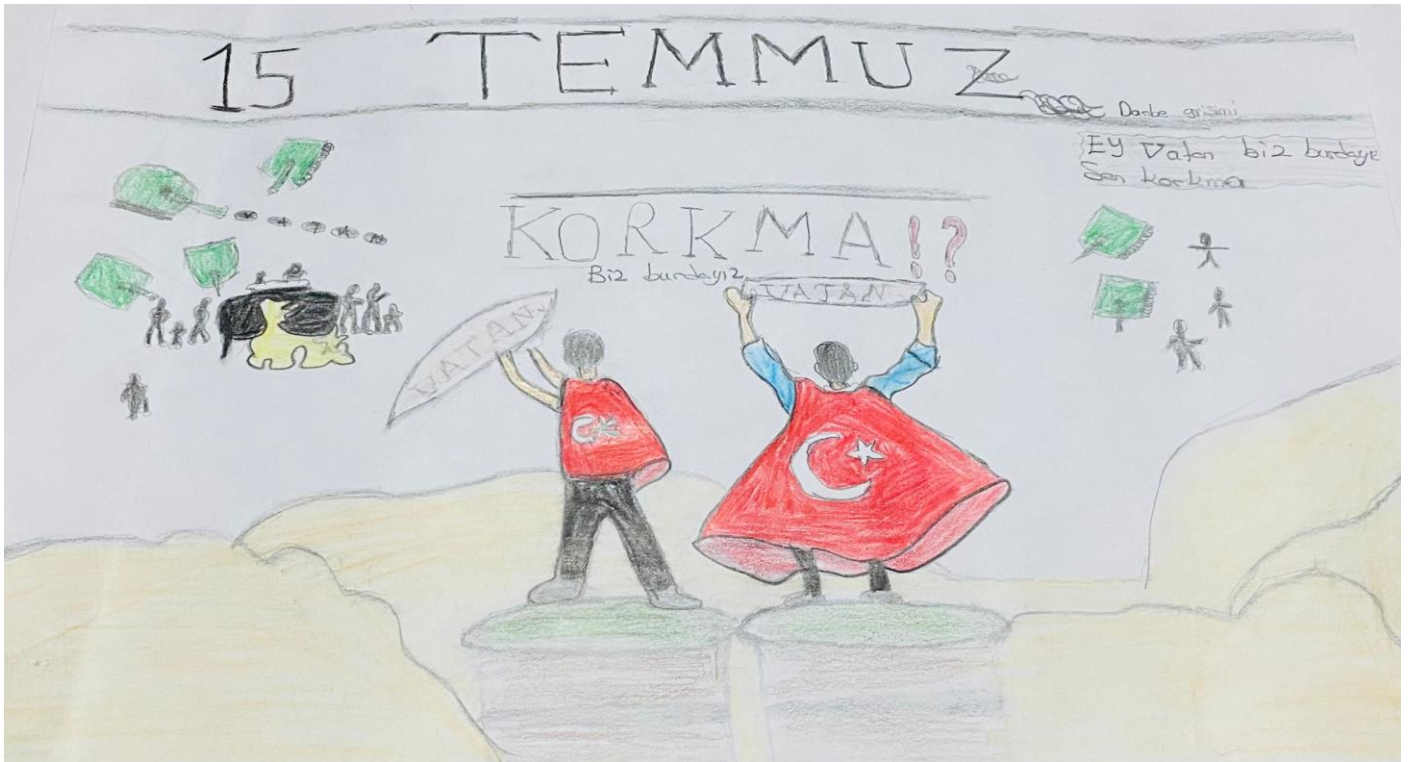 15 TEMMUZ
Darbe grişmi
Ey Vatan biz burdayız
Sen korkma
KORKMA!?
Biz burdayız
VATAN
VATAN